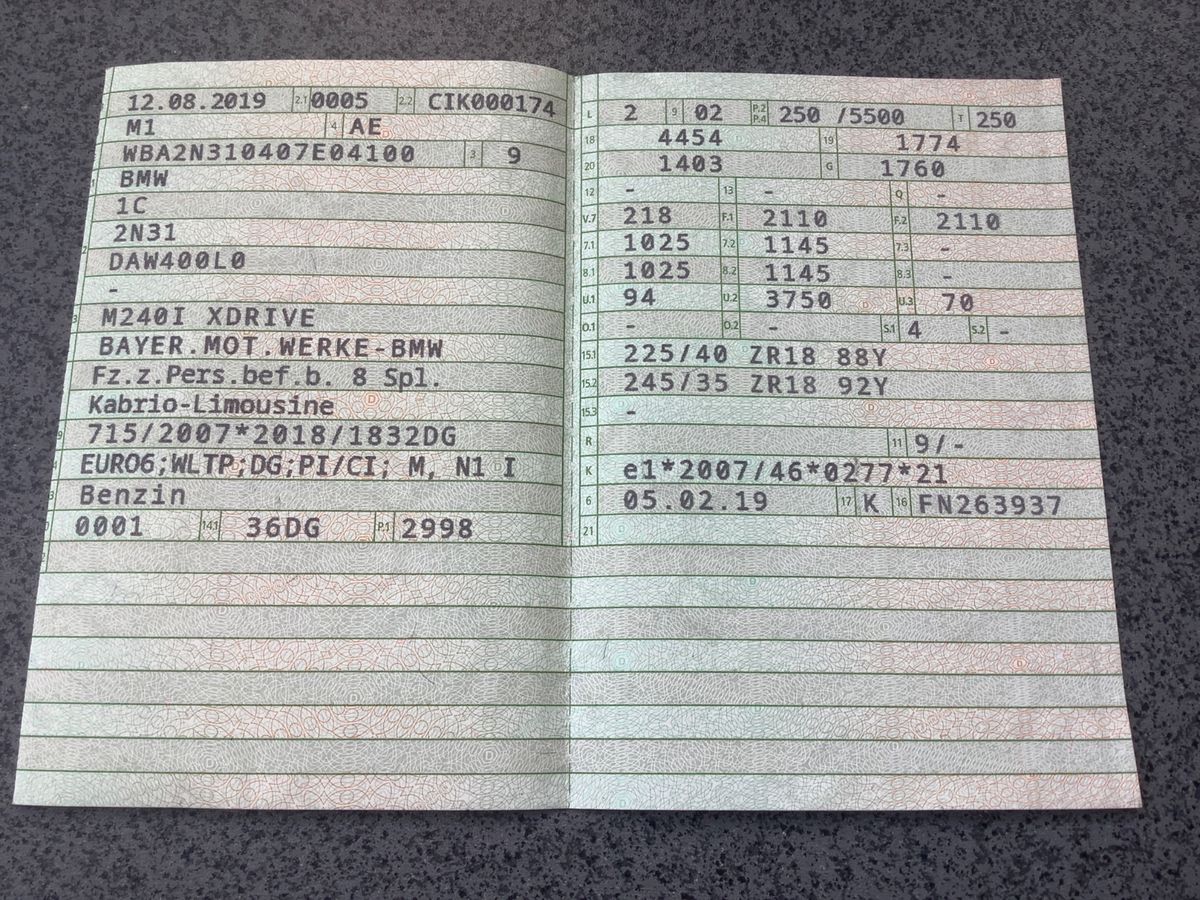 12.08.2019 2.1 0005 2.2 CIK000174
M1 4 AE
WBA2N310407E04100 3 9
BMW
1C
2N31
DAW400L0
-
M240I XDRIVE
BAYER.MOT.WERKE-BMW
Fz.z.Pers.bef.b. 8 Spl.
Kabrio-Limousine
715/2007*2018/1832DG
EURO6;WLTP;DG;PI/CI; M, N1 I
Benzin
0001 14.1 36DG P.1 2998
L 2 9 02 P.2 P.4 250 /5500 T 250
18 4454 19 1774
20 1403 G 1760
12 - 13 - Q -
V.7 218 F.1 2110 F.2 2110
7.1 1025 7.2 1145 7.3 -
8.1 1025 8.2 1145 8.3 -
U.1 94 U.2 3750 U.3 70
O.1 - O.2 - S.1 4 S.2 -
15.1 225/40 ZR18 88Y
15.2 245/35 ZR18 92Y
15.3 -
R 11 9/-
K e1*2007/46*0277*21
6 05.02.19 17 K 16 FN263937
21